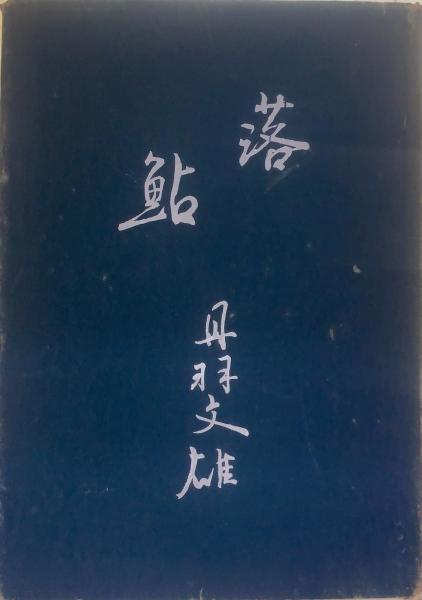 落鮎
丹羽文雄